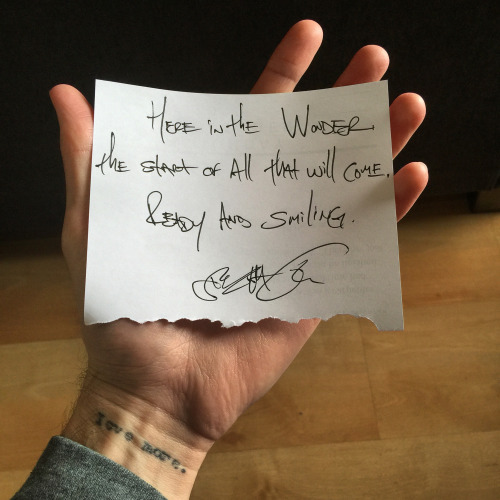 Here in the Wonder
the start of All that will come.
Ready And Smiling.
Love more.